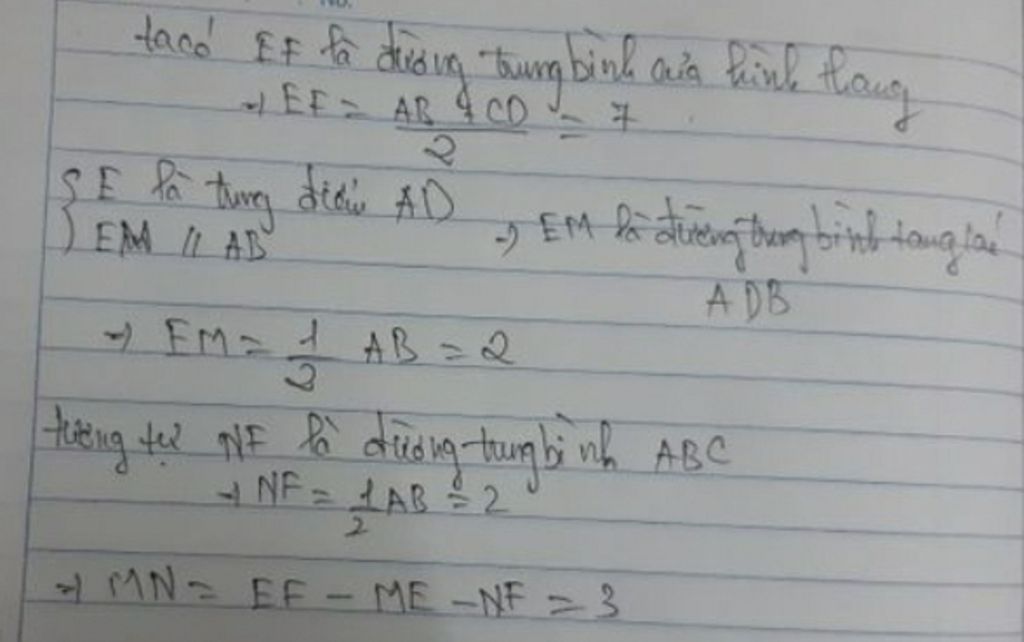 ta có EF là đường trung bình của hình thang
→ EF = AB + CD / 2 = 7
{ E là trung điểm AD
EM // AB → EM là đường trung bình tam giác
ADB
→ EM = 1/2 AB = 2
tương tự NF là đường trung bình ABC
→ NF = 1/2 AB = 2
→ MN = EF - ME - NF = 3